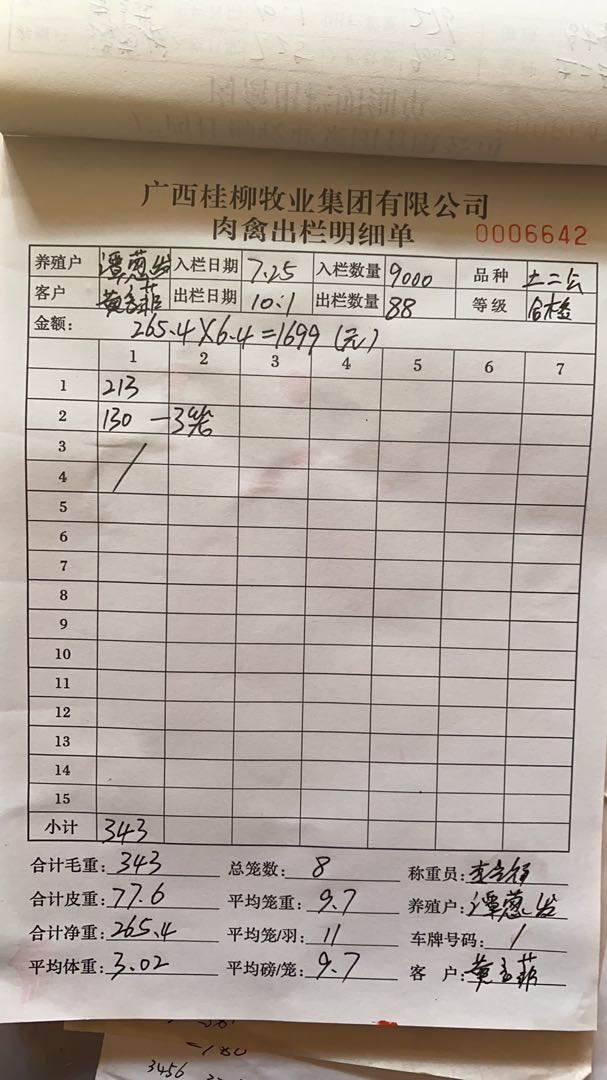 广西桂柳牧业集团有限公司
肉禽出栏明细单 0006642
养殖户 谭葱 入栏日期 7.25 入栏数量 9000 品种 土二
客户 黄 菲 出栏日期 10.1 出栏数量 88 等级 合格
金额: 265.4×6.4=1699(元)
1 2 3 4 5 6 7
1 213
2 130 — 3笼
3
4
5
6
7
8
9
10
11
12
13
14
15
小计 343
合计毛重: 343 总笼数: 8 称重员: 李
合计皮重: 77.6 平均笼重: 9.7 养殖户: 谭葱
合计净重: 265.4 平均笼/羽: 11 车牌号码: /
平均体重: 3.02 平均磅/笼: 9.7 客 户: 黄 菲
3456